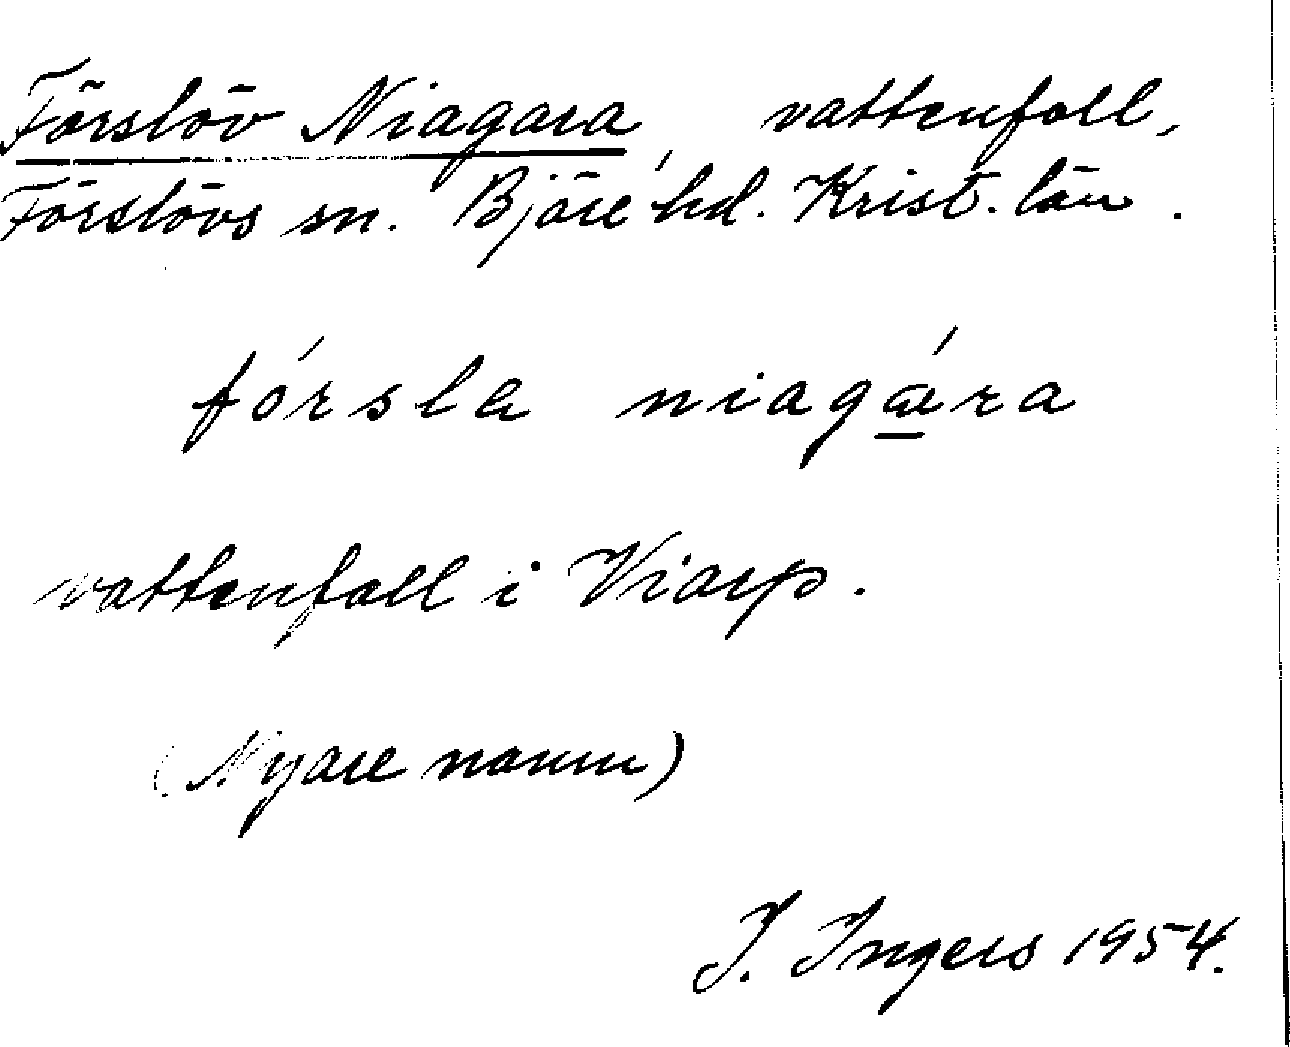 Förslöv Niagara, vattenfall,
Förslövs sn. Bjäre hd. Krist. län.
fórsla niagǽra
vattenfall i Viarp.
(Nyare namn)
I. Ingers 1954.